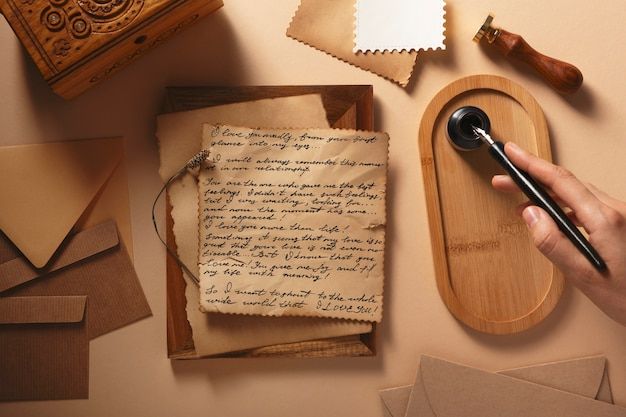 I love you madly, from your first
glance into my eyes...
I will always remember this
in our relationship
You are the one who gave me the best
feelings. I didn't have such feelings,
but I was waiting, looking for...
and now the moment has come...
you appeared!
I love you more than life!
Sometimes it seems that my love is so
that your love is not even no
But I know that you
love me! You gave me joy and
my life with meaning!
So I want to shout to the whole
wide world that I LOVE YOU!